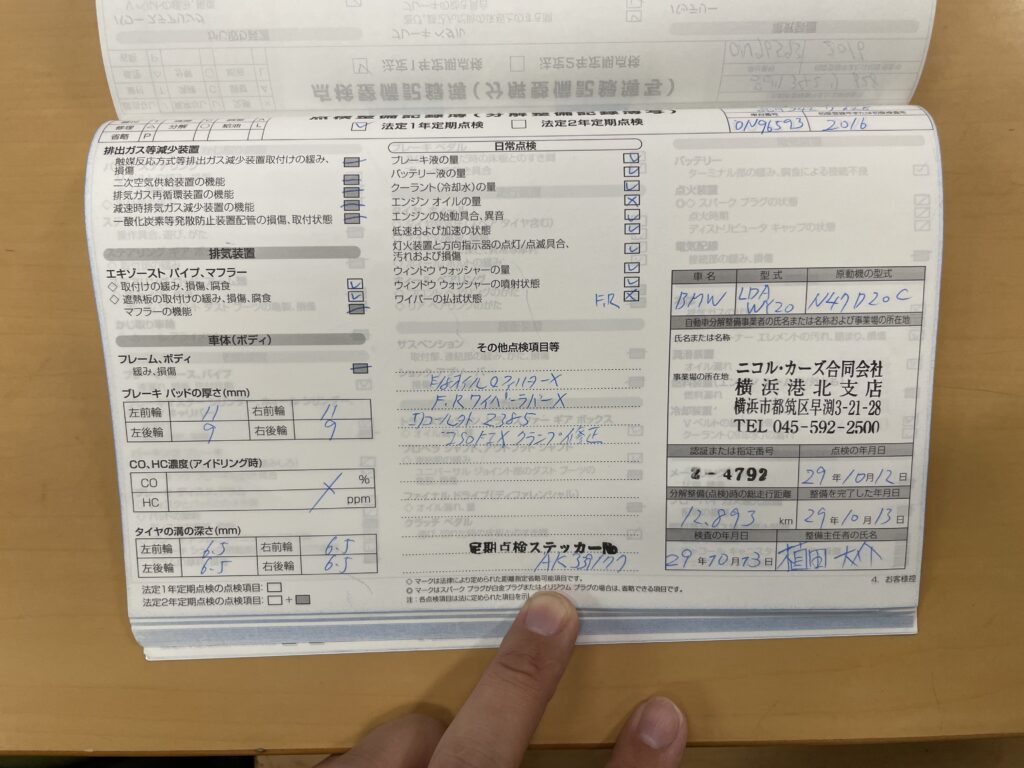 法定1年定期点検 法定2年定期点検
点検整備記録簿(分解整備記録簿写)
修理 △ 分解 ○ 給油 L
省略 P
法定1年定期点検 法定2年定期点検
0N96593 2016
排ガス等減少装置
触媒反応方式等排出ガス減少装置取付けの緩み、
損傷
二次空気供給装置の機能
排気ガス再循環装置の機能
減速時排気ガス減少装置の機能
一酸化炭素等発散防止装置配管の損傷、取付状態
排気装置
エキゾースト パイプ、マフラー
◇ 取付けの緩み、損傷、腐食
◇ 遮熱板の取付けの緩み、損傷、腐食
マフラーの機能
車体(ボディ)
フレーム、ボディ
緩み、損傷
ブレーキ パッドの厚さ(mm)
左前輪 11 右前輪 11
左後輪 9 右後輪 9
CO、HC濃度(アイドリング時)
CO %
HC ppm
タイヤの溝の深さ(mm)
左前輪 6.5 右前輪 6.5
左後輪 6.5 右後輪 6.5
法定1年定期点検の点検項目:
法定2年定期点検の点検項目: +
日常点検
ブレーキ液の量
バッテリー液の量
クーラント(冷却水)の量
エンジン オイルの量
エンジンの始動具合、異音
低速および加速の状態
灯火装置と方向指示器の点灯/点滅具合、
汚れおよび損傷
ウィンドウ ウォッシャーの量
ウィンドウ ウォッシャーの噴射状態
ワイパーの払拭状態 F.R
その他点検項目等
F.R ワイパーラバーX
クランプ 修正
定期点検ステッカー№
AK 39177
◇ マークは法律により定められた距離指定省略可能項目です。
◎ マークはスパーク プラグが白金プラグまたはイリジウム プラグの場合は、省略できる項目です。
注:各点検項目は法に定められた項目を示し
車名 型式 原動機の型式
BMW LDA N47D20C
WY20
自動車分解整備事業者の氏名または名称および事業場の所在地
氏名または名称
ニコル・カーズ合同会社
事業場の所在地
横浜港北支店
横浜市都筑区早渕3-21-28
TEL 045-592-2500
認証または指定番号 点検の年月日
2-4792 29年10月12日
分解整備(点検)時の総走行距離 整備を完了した年月日
12,893 km 29年10月13日
検査の年月日 整備主任者の氏名
29年10月13日 植田大介
4. お客様控